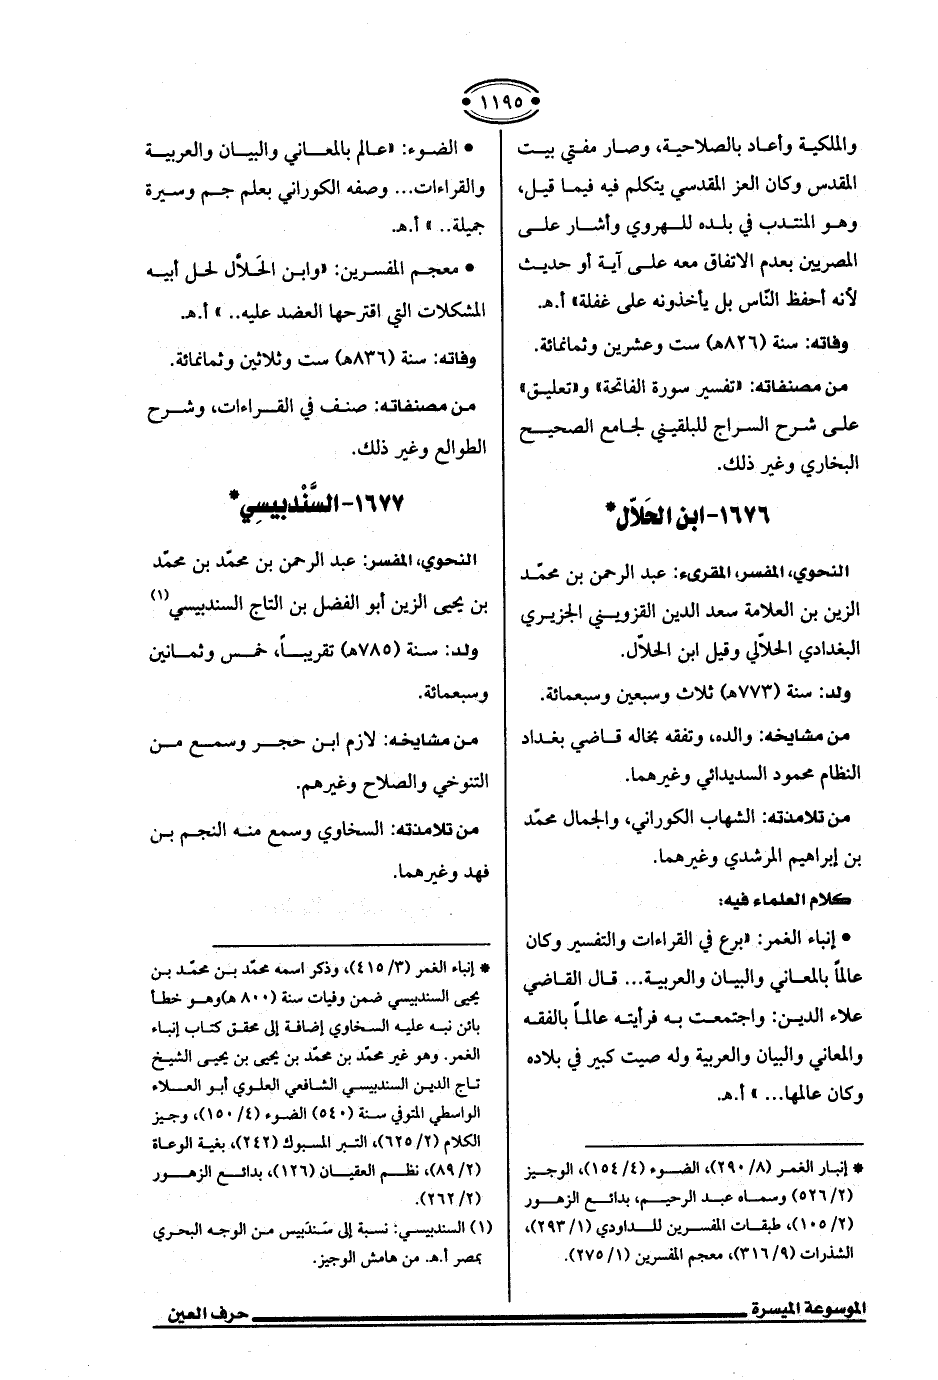 ١١٩٥
والملكية وأعاد بالصلاحية، وصار مفتي بيت
المقدس وكان العز المقدسي يتكلم فيه فيما قيل،
وهو المنتدب في بلده للهروي وأشار على
المصريين بعدم الاتفاق معه على آية أو حديث
لأنه أحفظ النّاس بل يأخذونه على غفلة» أ.هـ.
وفاته: سنة (٨٢٦هـ) ست وعشرين وثمانمائة.
من مصنفاته: «تفسير سورة الفاتحة» و«تعليق»
على شرح السراج للبلقيني لجامع الصحيح
البخاري وغير ذلك.
١٦٧٦- ابن الحَلاَّل*
النحوي، المفسر، المقرىء: عبد الرحمن بن محمّد
الزين بن العلامة سعد الدين القزويني الجزيري
البغدادي الحلالّي وقيل ابن الحلاّل.
ولد: سنة (٧٧٣هـ) ثلاث وسبعين وسبعمائة.
من مشايخه: والده، وتفقه بخاله قاضي بغداد
النظام محمود السديدائي وغيرهما.
من تلامذته: الشهاب الكوراني، والجمال محمّد
بن إبراهيم المرشدي وغيرهما.
كلام العلماء فيه:
• إنباء الغمر: «برع في القراءات والتفسير وكان
عالماً بالمعاني والبيان والعربية... قال القاضي
علاء الدين: واجتمعت به فرأيته عالماً بالفقه
والمعاني والبيان والعربية وله صيت كبير في بلاده
وكان عالمها... » أ.هـ.
* إنبار الغمر (٨/ ٢٩٠)، الضوء (٤/ ١٥٤)، الوجيز
(٢/ ٥٢٦) وسماه عبد الرحيم، بدائع الزهور
(٢/ ١٠٥)، طبقات المفسرين للداودي (١/ ٢٩٣)،
الشذرات (٩/ ٣١٦)، معجم المفسرين (١/ ٢٧٥).
• الضوء: «عالم بالمعاني والبيان والعربية
والقراءات... وصفه الكوراني بعلم جم وسيرة
جميلة.. » أ.هـ.
• معجم المفسرين: «وابن الحَلاَّل لحل أبيه
المشكلات التي اقترحها العضد عليه.. » أ.هـ.
وفاته: سنة (٨٣٦هـ) ست وثلاثين وثمانمائة.
من مصنفاته: صنف في القراءات، وشرح
الطوالع وغير ذلك.
١٦٧٧- السَّنْدبيسِي*
النحوي، المفسر: عبد الرحمن بن محمّد بن محمّد
بن يحيى الزين أبو الفضل بن التاج السندبيسي(١)
ولد: سنة (٧٨٥هـ) تقريباً، خمس وثمانين
وسبعمائة.
من مشايخه: لازم ابن حجر وسمع من
التنوخي والصلاح وغيرهم.
من تلامذته: السخاوي وسمع منه النجم بن
فهد وغيرهما.
* إنباء الغمر (٣/ ٤١٥)، وذكر اسمه محمّد بن محمّد بن
يحيى السندبيسي ضمن وفيات سنة (٨٠٠هـ)وهو خطأ
بائن نبه عليه السخاوي إضافة إلى محقق كتاب إنباء
الغمر. وهو غير محمّد بن محمّد بن يحيى بن يحيى الشيخ
تاج الدين السندبيسي الشافعي العلوي أبو العلاء
الواسطي المتوفي سنة (٥٤٠) الضوء (٤/ ١٥٠)، وجيز
الكلام (٢/ ٦٢٥)، التبر المسبوك (٢٤٢)، بغية الوعاة
(٢/ ٨٩)، نظم العقيان (١٢٦)، بدائع الزهور
(٢/ ٢٦٢).
(١) السندبيسي: نسبة إلى سَندَبيس من الوجه البحري
بمصر أ.هـ. من هامش الوجيز.
الموسوعة الميسرة
حرف العين